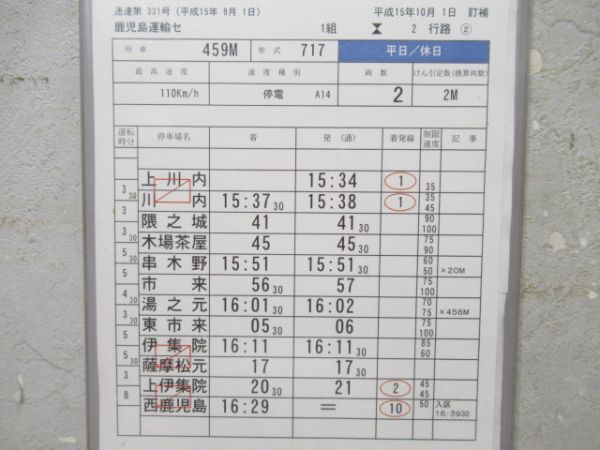 通達第 331号（平成15年 9月 1日）　平成15年10月 1日 訂補
鹿児島運輸セ　1組　2 行路 ②
列車　459M　形式　717　平日／休日
最高速度　速度種別　両数　けん引定数(換算両数)
110Km/h　停電 A14　2　2M
運転時分　停車場名　着　発（通）　着発線　制限速度　記事
上川内　15:34　1　35
3 30
川内　15:37 30　15:38　1　35 45
3
隈之城　41　41 30　90 100
3 30
木場茶屋　45　45 30　75 90
5 30
串木野　15:51　15:51 30　60 50　×20M
5
市来　56 30　57　75 100
4 30
湯之元　16:01 30　16:02　70 75　×456M
3 30
東市来　05 30　06　75 100
5
伊集院　16:11　16:11 30　85 60
5 30
薩摩松元　17　17 30
3
上伊集院　20 30　21　2　45 45
8
西鹿児島　16:29　＝　10　50　入区 16:3930